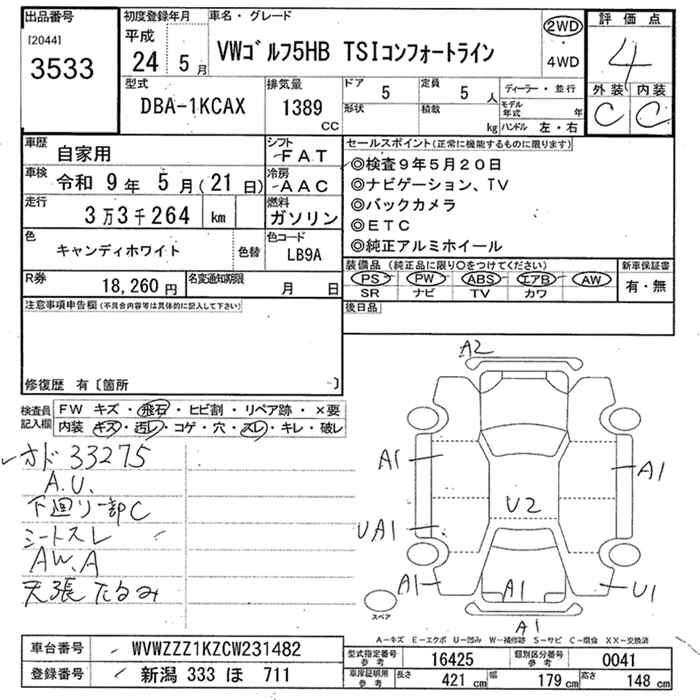 出品番号
[2044]
3533
初度登録年月
平成
24 5 月
車名・グレード
VWゴルフ5HB TSIコンフォートライン
2WD
・
4WD
評価点
4
外装 内装
C C
型式
DBA-1KCAX
排気量
1389
CC
ドア
5
定員
5 人
形状
積載
kg
ディーラー・並行
モデル年式 年
ハンドル 左・右
車歴
自家用
シフト
FAT
車検
令和 9年 5月(21日)
冷房
AAC
走行
3万3千264 km
燃料
ガソリン
色
キャンディホワイト
色替
色コード
LB9A
R券
18,260 円
名変通知期限
月 日
セールスポイント(正常に機能するものに限ります)
◎検査9年5月20日
◎ナビゲーション、TV
◎バックカメラ
◎ETC
◎純正アルミホイール
装備品(純正品に限り○をつけてください)
PS PW ABS エアB AW
SR ナビ TV カワ
新車保証書
有・無
後日品
注意事項申告欄(不具合内容等は具体的に記入して下さい)
修復歴 有〔箇所 〕
検査員記入欄
FW キズ・飛石・ヒビ割・リペア跡・×要
内装 キズ・汚レ・コゲ・穴・スレ・キレ・破レ
オド 33275
A.U.
下廻り一部C
シートスレ
AW.A
天張たるみ
A2
A1
A1
U2
UA1
A1
A1
U1
A1
スペア
A-キズ E-エクボ U-凹み W-補修跡 S-サビ C-腐食 XX-交換済
車台番号
WVWZZZ1KZCW231482
登録番号
新潟 333 ほ 711
型式指定番号
参考
16425
類別区分番号
参考
0041
車庫証明用
参考
長さ 421 cm
幅 179 cm
高さ 148 cm